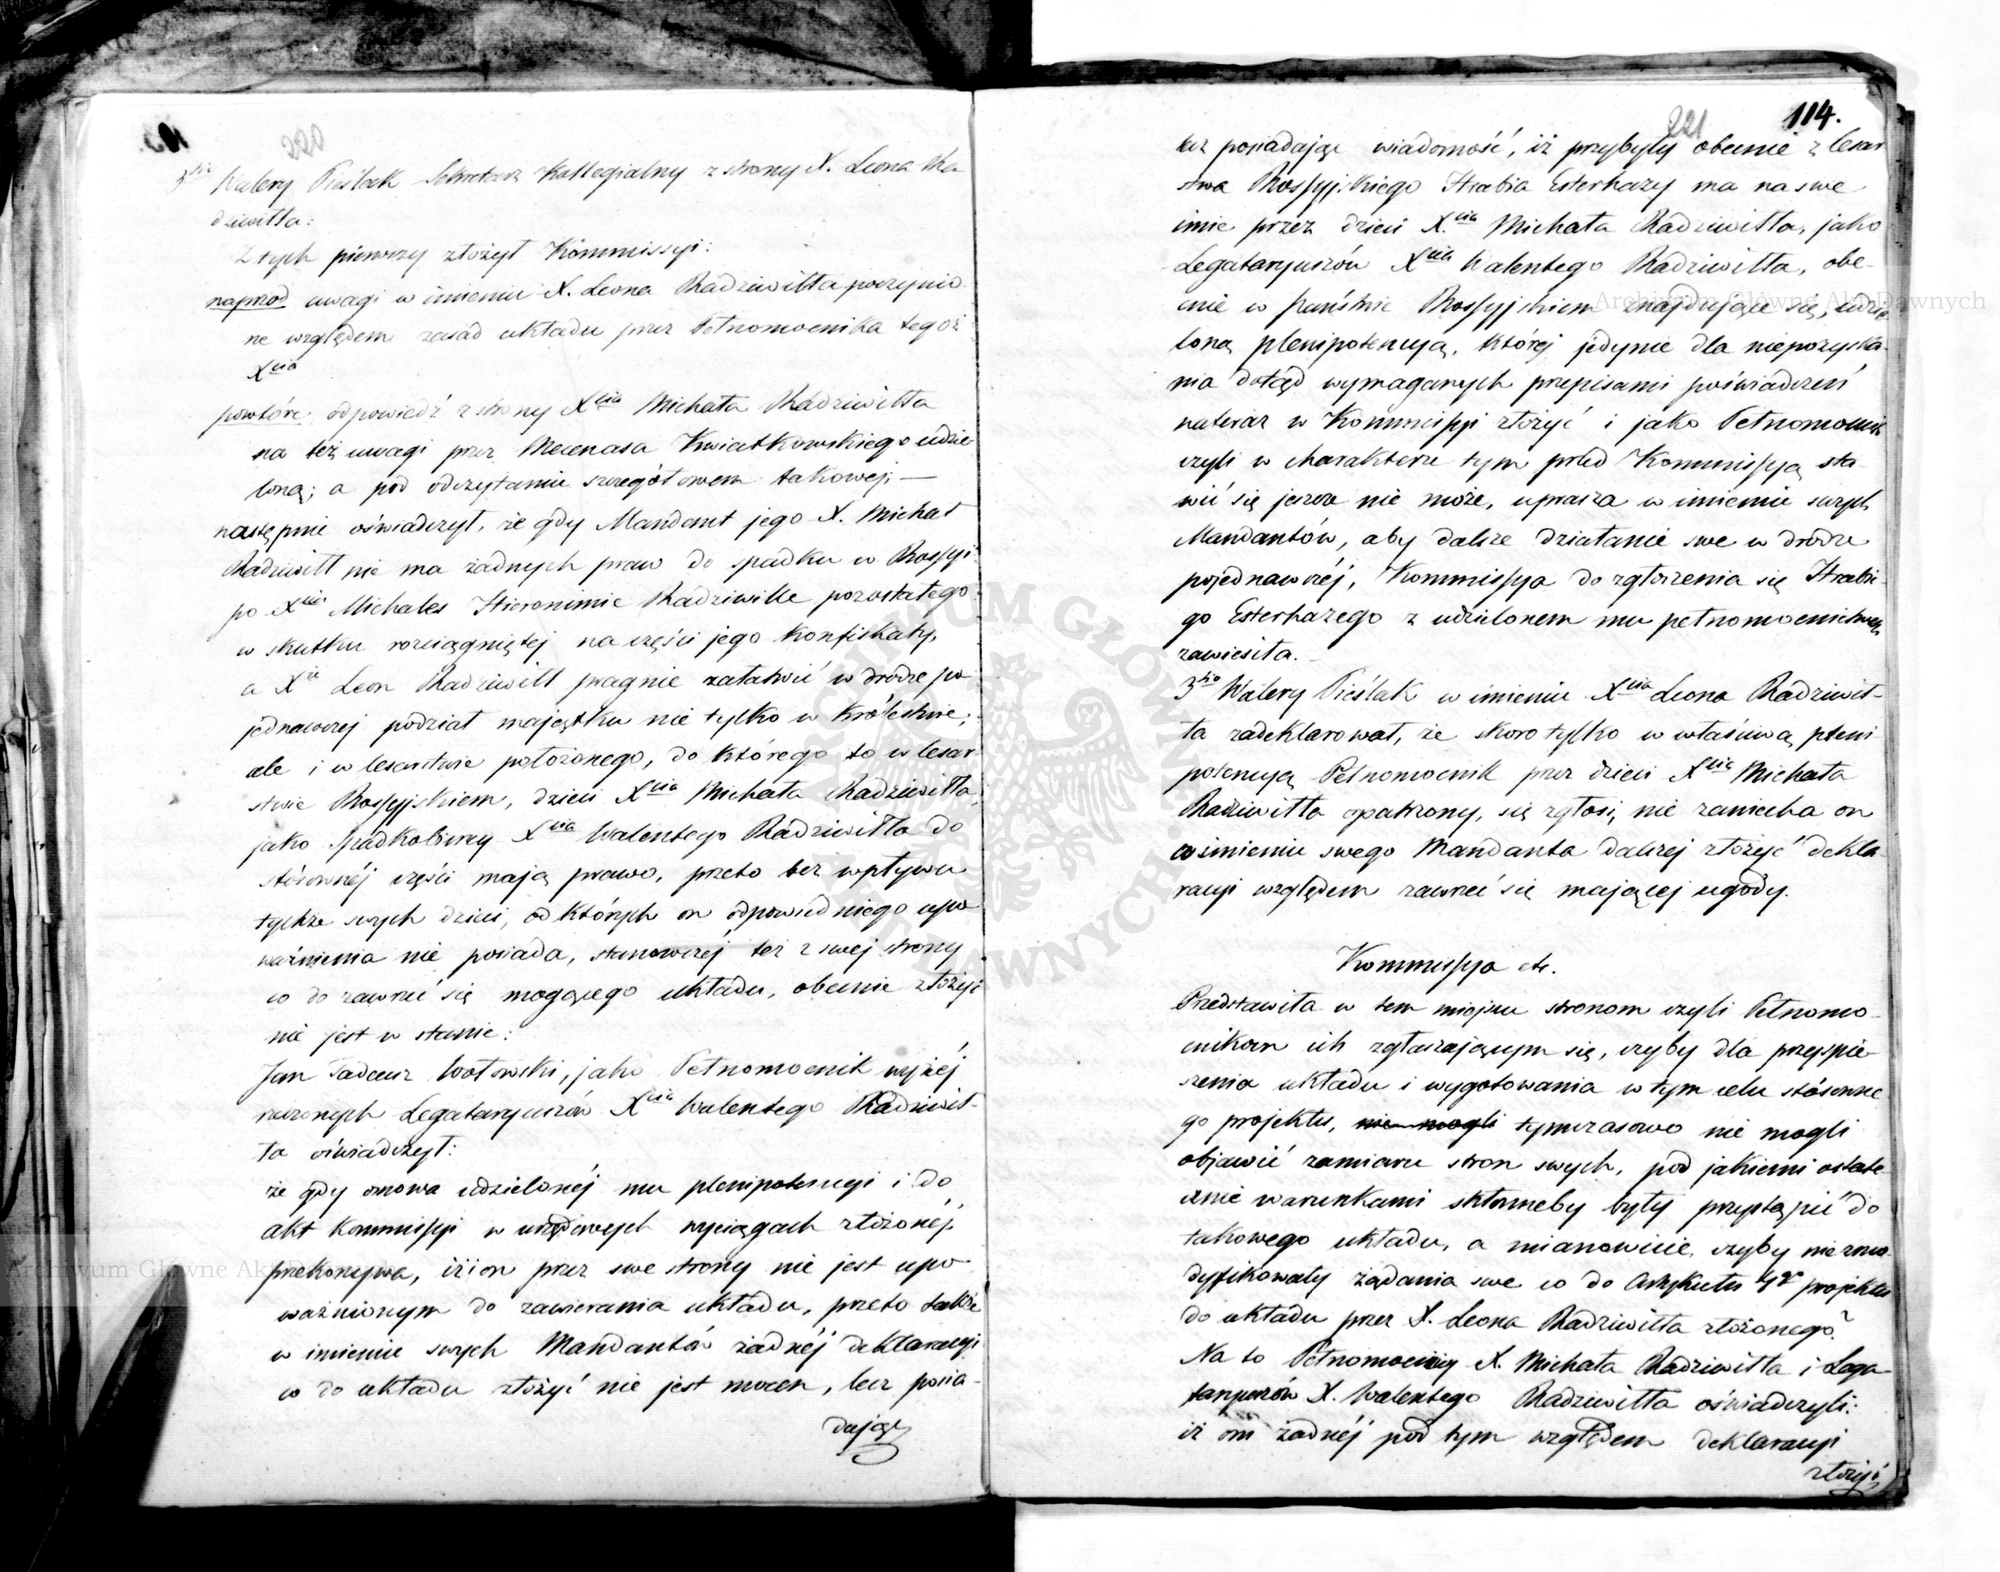 3tio Walery Pieślak Sekretarz Kollegialny z strony X. Leona Ra
dziwiłła:
Z tych pierwszy złożył Kommissyi:
naprzod uwagi w imieniu X. Leona Radziwiłła poczynio
ne względem zasad układu przez Pełnomocnika tegoż
Xcia
powtóre odpowiedź z strony Xcia Michała Radziwiłła
na też uwagi przez Mecenasa Kwiatkowskiego udzie
loną; a pod odczytaniu szczegółowem takowej; —
następnie oświadczył, że gdy Mandant jego X. Michał
Radziwiłł nie ma żadnych praw do spadku w Rossyi
po Xciu Michale Hieronimie Radziwille pozostałego
w skutku rozciągniętej na części jego konfiskaty,
a Xże Leon Radziwiłł pragnie załatwić w drodze po
jednawczej podział majątku nie tylko w Królestwie;
ale i w Cesarstwie położonego, do którego to w Cesar
stwie Rossyjskiem, dzieci Xcia Michała Radziwiłła,
jako Spadkobiercy Xcia Walentego Radziwiłła do
stósownéj części mają prawo, przeto bez wpływu
tychże swych dzieci, od których on odpowiedniego upo
ważnienia nie posiada, stanowczéj też z swej strony
co do zawrzeć się mogącego układu, obecnie złożyć
nie jest w stanie:
Jan Tadeusz Wołowski, jako Pełnomocnik wyżéj
rzeczonych Legataryuszów Xcia Walentego Radziwił-
ła oświadczył:
że gdy osnowa udzielonéj mu plenipotencyi i do
akt Kommissyi w urzędowych wyciągach złożonéj,
przekonywa, iż on przez swe strony nie jest upo
ważnionym do zawierania układu, przeto także
w imieniu swych Mandantów żadnéj deklaracyi
co do układu złożyć nie jest mocen, lecz posia-
dając
221
114.
lecz posiadając wiadomość, iż przybyły obecnie z Cesar
stwa Rossyjskiego Hrabia Esterhazy ma na swe
imie przez dzieci X.cia Michała Radziwiłła, jako
Legataryuszów Xcia Walentego Radziwiłła, obe-
cnie w Państwie Rossyjskiem znajdujące się, udzie
loną plenipotencyą, której jedynie dla niepozyska-
nia dotąd wymaganych przepisami poświadczeń
nateraz w Kommissyi złożyć i jako Pełnomocnik
czyli w charakterze tym przed Kommissyą sta-
wić się jeszcze nie może, uprasza w imieniu swych
Mandantów, aby dalsze działanie swe w drodze
pojednawczéj, Kommissya do zgłoszenia się Hrabie-
go Esterhazego z udzielonem mu pełnomocnictwem
zawiesiła. —
3tio Walery Pieślak w imieniu Xcia Leona Radziwił-
ła zadeklarował, że skoro tylko w właściwą pleni
potencyą Pełnomocnik przez dzieci Xcia Michała
Radziwiłła opatrzony, się zgłosi, nie zaniecha on
w imieniu swego Mandanta dalszéj złożyć dekla-
racyi względem zawrzeć się mającej ugody.
Kommissya etc.
Przedstawiła w tem miejscu stronom czyli Pełnomo-
cnikom ich zgłaszającym się, czyby dla przyspie-
szenia układu i wygotowania w tym celu stósowne-
go projektu, nie mogli tymczasowo nie mogli
objawić zamiaru stron swych, pod jakiemi ostate-
cznie warunkami skłonneby były przystąpić do
takowego układu, a mianowicie, czyby nie zmo-
dyfikowały żądania swe co do Artykułu 4go projektu
do układu przez X. Leona Radziwiłła złożonego?
Na to Pełnomocnicy X. Michała Radziwiłła i Lega-
taryuszów X. Walentego Radziwiłła oświadczyli:
iż oni żadnéj pod tym względem deklaracyi
złożyć
Archiwum Główne Akt Dawnych